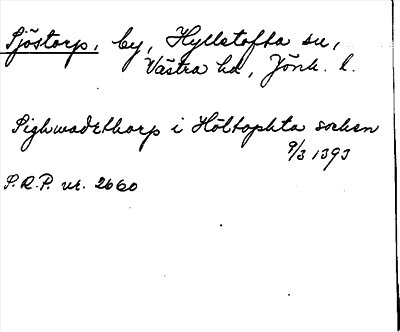 Sjöstorp, by, Hyllstofta sn,
Västra hd, Jönk. l.
Sighwadzthorp i Höltophta sochen
9/3 1393
S.R.P. nr. 2660